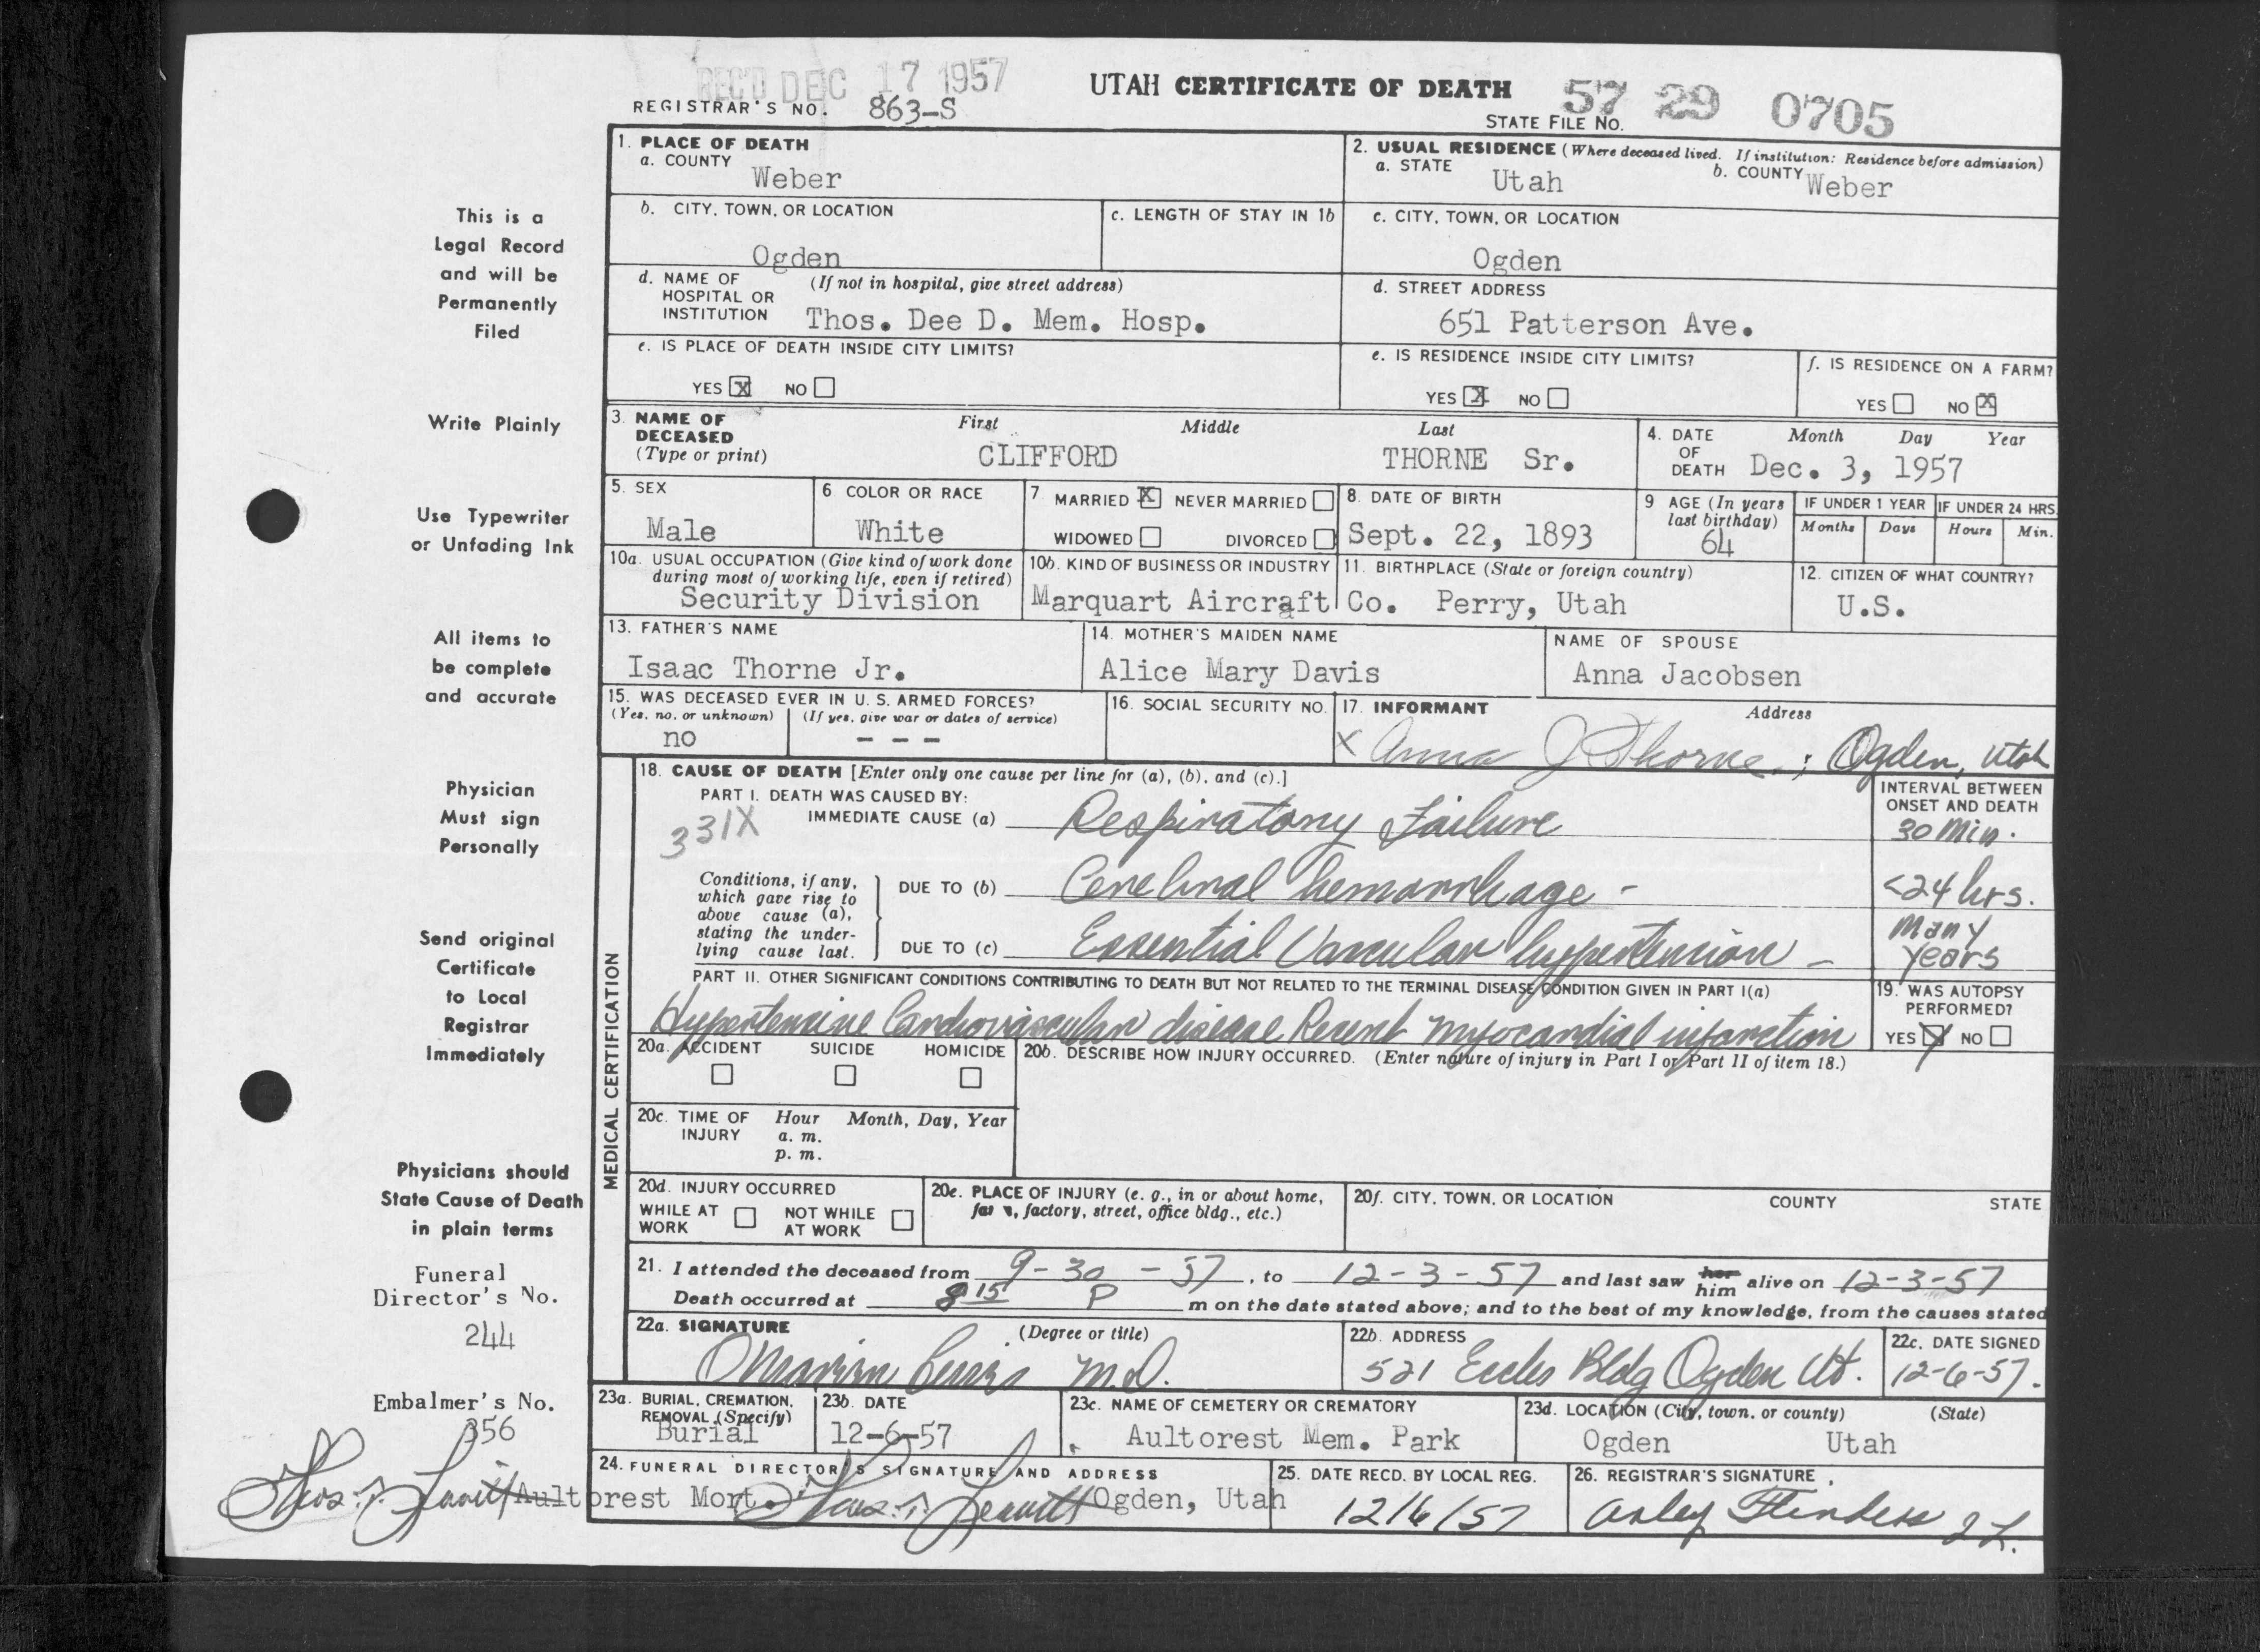 REC'D DEC 17 1957
UTAH CERTIFICATE OF DEATH
57 29 0705
REGISTRAR'S NO. 863-S
STATE FILE NO.
This is a
Legal Record
and will be
Permanently
Filed
Write Plainly
Use Typewriter
or Unfading Ink
All items to
be complete
and accurate
Physician
Must sign
Personally
Send original
Certificate
to Local
Registrar
Immediately
Physicians should
State Cause of Death
in plain terms
Funeral
Director's No.
244
Embalmer's No.
356
1. PLACE OF DEATH
a. COUNTY
Weber
2. USUAL RESIDENCE (Where deceased lived. If institution: Residence before admission)
a. STATE Utah b. COUNTY Weber
b. CITY, TOWN, OR LOCATION
Ogden
c. LENGTH OF STAY IN 1b
c. CITY, TOWN, OR LOCATION
Ogden
d. NAME OF (If not in hospital, give street address)
HOSPITAL OR
INSTITUTION Thos. Dee D. Mem. Hosp.
d. STREET ADDRESS
651 Patterson Ave.
e. IS PLACE OF DEATH INSIDE CITY LIMITS?
YES X NO
e. IS RESIDENCE INSIDE CITY LIMITS?
YES X NO
f. IS RESIDENCE ON A FARM?
YES NO X
3. NAME OF DECEASED (Type or print)
First Middle Last
CLIFFORD THORNE Sr.
4. DATE OF DEATH
Month Day Year
Dec. 3, 1957
5. SEX
Male
6 COLOR OR RACE
White
7 MARRIED X NEVER MARRIED
WIDOWED DIVORCED
8. DATE OF BIRTH
Sept. 22, 1893
9 AGE (In years
last birthday)
64
IF UNDER 1 YEAR
Months Days
IF UNDER 24 HRS.
Hours Min.
10a. USUAL OCCUPATION (Give kind of work done
during most of working life, even if retired)
Security Division
10b. KIND OF BUSINESS OR INDUSTRY
Marquart Aircraft Co.
11. BIRTHPLACE (State or foreign country)
Perry, Utah
12. CITIZEN OF WHAT COUNTRY?
U.S.
13. FATHER'S NAME
Isaac Thorne Jr.
14. MOTHER'S MAIDEN NAME
Alice Mary Davis
NAME OF SPOUSE
Anna Jacobsen
15. WAS DECEASED EVER IN U. S. ARMED FORCES?
(Yes, no, or unknown) (If yes, give war or dates of service)
no - - -
16. SOCIAL SECURITY NO.
17. INFORMANT Address
X Anna J Thorne ; Ogden, Utah
MEDICAL CERTIFICATION
18. CAUSE OF DEATH [Enter only one cause per line for (a), (b), and (c).]
INTERVAL BETWEEN
ONSET AND DEATH
PART I. DEATH WAS CAUSED BY:
331X
IMMEDIATE CAUSE (a) Respiratory Failure 30 Min.
Conditions, if any,
which gave rise to
above cause (a),
stating the under-
lying cause last.
DUE TO (b) Cerebral hemorrhage - <24 hrs.
DUE TO (c) Essential Vascular hypertension - Many years
PART II. OTHER SIGNIFICANT CONDITIONS CONTRIBUTING TO DEATH BUT NOT RELATED TO THE TERMINAL DISEASE CONDITION GIVEN IN PART I(a)
Hypertensive Cardiovascular disease Recent myocardial infarction
19. WAS AUTOPSY
PERFORMED?
YES X NO
20a. ACCIDENT SUICIDE HOMICIDE
20b. DESCRIBE HOW INJURY OCCURRED. (Enter nature of injury in Part I or Part II of item 18.)
20c. TIME OF INJURY
Hour Month, Day, Year
a. m.
p. m.
20d. INJURY OCCURRED
WHILE AT WORK NOT WHILE AT WORK
20e. PLACE OF INJURY (e. g., in or about home,
farm, factory, street, office bldg., etc.)
20f. CITY, TOWN, OR LOCATION COUNTY STATE
21. I attended the deceased from 9-30-57, to 12-3-57 and last saw her him alive on 12-3-57
Death occurred at 8 15 P m on the date stated above; and to the best of my knowledge, from the causes stated
22a. SIGNATURE (Degree or title)
M.D.
22b. ADDRESS
521 Eccles Bldg Ogden Ut.
22c. DATE SIGNED
12-6-57.
23a. BURIAL, CREMATION,
REMOVAL (Specify)
Burial
23b. DATE
12-6-57
23c. NAME OF CEMETERY OR CREMATORY
Aultorest Mem. Park
23d. LOCATION (City, town, or county) (State)
Ogden Utah
24. FUNERAL DIRECTOR'S SIGNATURE AND ADDRESS
Aultorest Mort. Ogden, Utah
25. DATE RECD. BY LOCAL REG.
12/6/57
26. REGISTRAR'S SIGNATURE